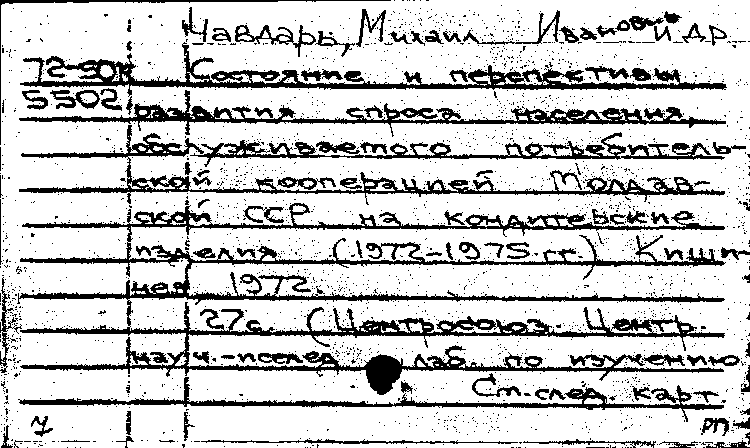 Чавдарь, Михаил Иванович и др.
72-50к Состояние и перепективы
5502 развития спроса населения,
обслуживаемого потребитель-
ской кооперацией Молдав-
ской ССР на кондитерские
изделия (1972-1975 гг.) Киши-
нев, 1972.
27с. (Центросоюз. Центр.
науч.-исслед. лаб. по изучению
См. след. карт.